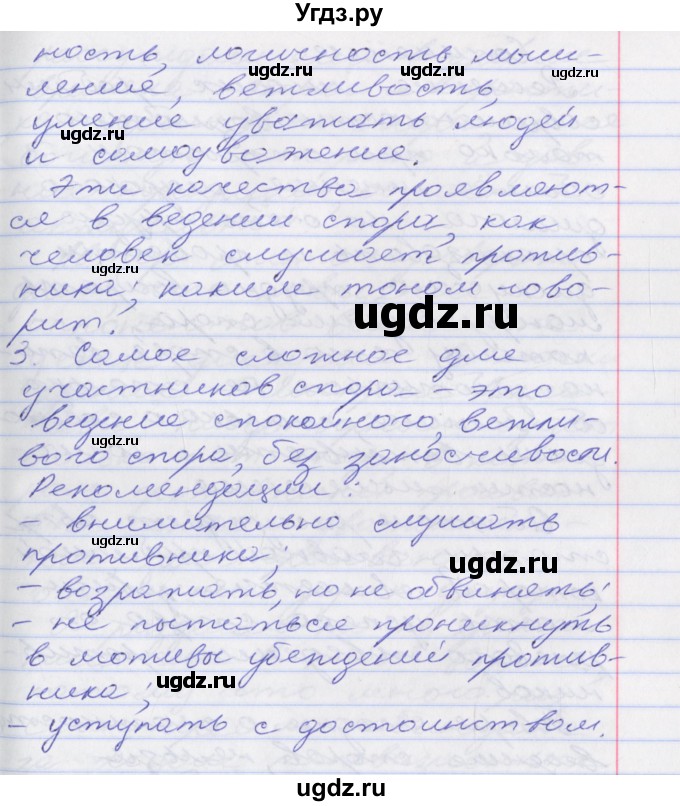 Угдз.ру
ность, логичность мыш-
ления, вежливость,
умение уважать людей
и самоуважение.
Эти качества проявляют-
ся в ведении спора, как
человек слушает против-
ника, каким тоном гово-
рит.
3. Самое сложное для
участников спора - это
ведение спокойного, вежли-
вого спора, без заносчивости.
Рекомендации:
- внимательно слушать
противника;
- возражать, но не обвинять;
- не пытаться проникнуть
в мотивы убеждений против-
ника;
- уступать с достоинством.
ugdz.ru
ugdz.ru
ugdz.ru
ugdz.ru
ugdz.ru
ugdz.ru
ugdz.ru
ugdz.ru
ugdz.ru
ugdz.ru
ugdz.ru
ugdz.ru
ugdz.ru